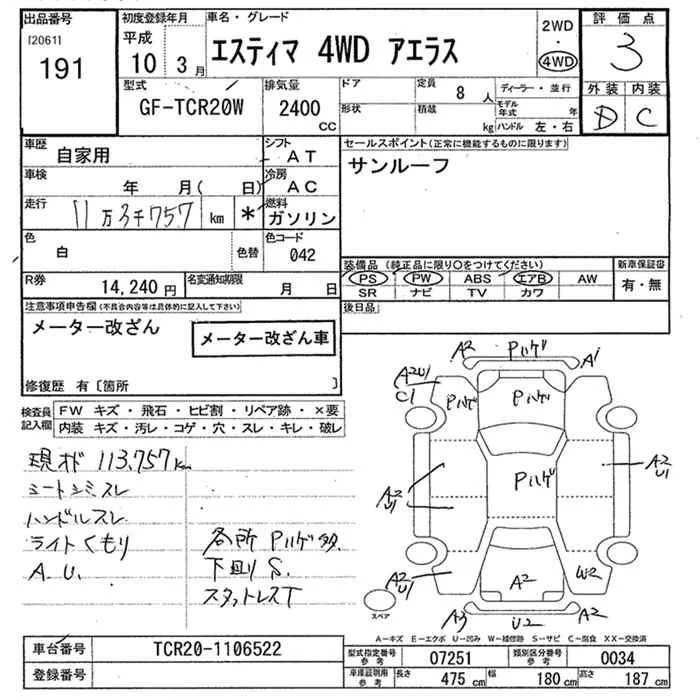 出品番号
[2061]
191
初度登録年月
平成
10年 3月
車名・グレード
エスティマ 4WD アエラス
2WD
・
4WD
評価点
3
外装 内装
D C
型式
GF-TCR20W
排気量
2400
CC
ドア
形状
定員
8人
積載
kg
ディーラー・並行
モデル年式 年
ハンドル 左・右
車歴
自家用
シフト
AT
車検
年 月( 日)
冷房
AC
走行
11万3千757 km *
燃料
ガソリン
色
白
色替
色コード
042
R券
14,240円
名変通知期限
月 日
セールスポイント(正常に機能するものに限ります)
サンルーフ
装備品(純正品に限り○をつけてください)
新車保証書
PS PW ABS エアB AW
SR ナビ TV カワ
有・無
後日品
注意事項申告欄(不具合内容等は具体的に記入して下さい)
メーター改ざん
メーター改ざん車
修復歴 有〔箇所 〕
検査員記入欄
FW キズ・飛石・ヒビ割・リペア跡・×要
内装 キズ・汚レ・コゲ・穴・スレ・キレ・破レ
現状 113,757km
シートシミスレ
ハンドルスレ
ライトくもり
A.U.
各所 Pハゲ多
下回りS.
スタットレスT
A2 Pハゲ A1
A2U1
C1
Pハゲ Pハゲ
Pハゲ
A2
U1
A2
U1
A2
U1
A2 W2
A3 U2 A2
スペア
A-キズ E-エクボ U-凹み W-補修跡 S-サビ C-腐食 XX-交換済
車台番号
TCR20-1106522
登録番号
型式指定番号
参考
07251
類別区分番号
参考
0034
車庫証明用
参考
長さ 475 cm
幅 180 cm
高さ 187 cm